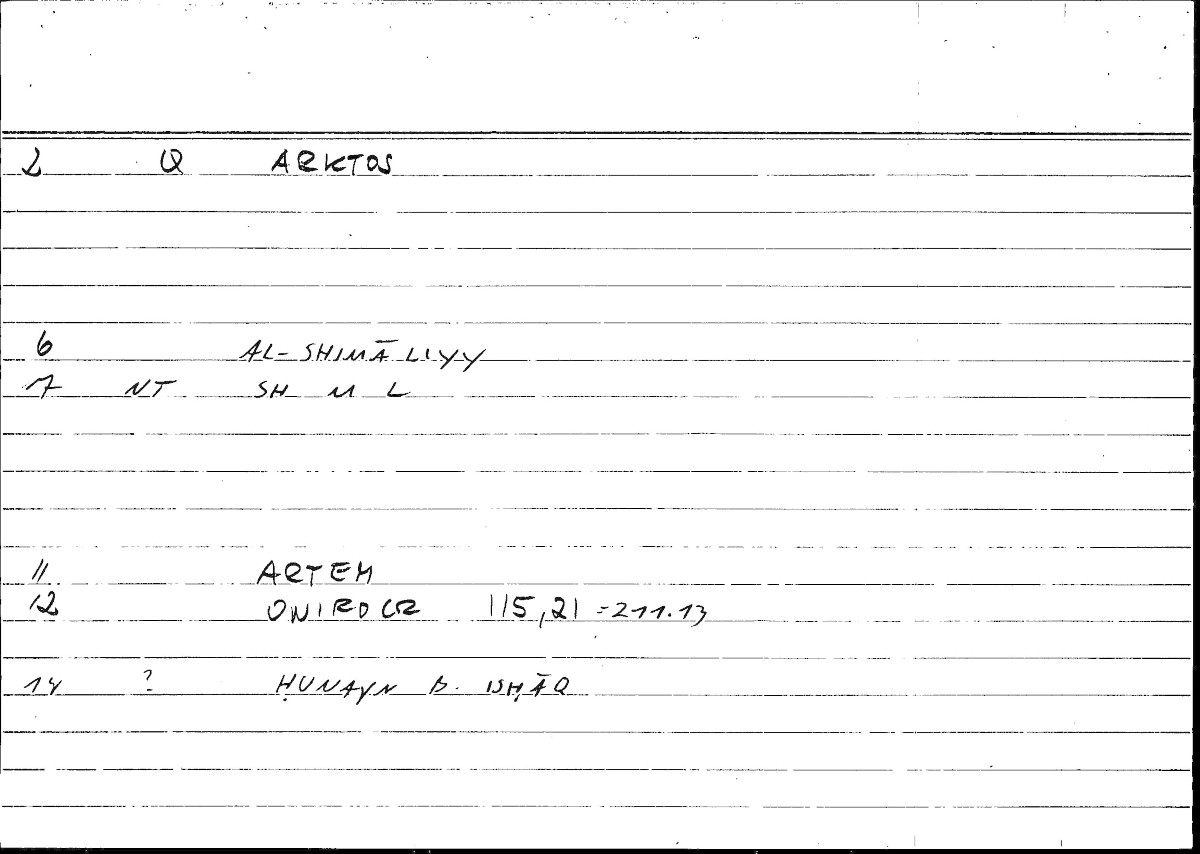 2 Q ARKTOS
6 AL-SHIMĀLIYY
7 NT SH M L
11 ARTEM
12 ONIROCR 115,21 =211.13
14 ? ḤUNAYN B. ISḤĀQ